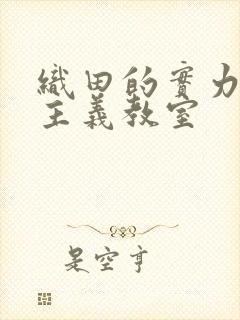 織田的實力
主義教室
是空亨